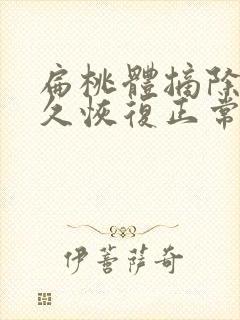 扁桃體摘除
久恢復正常
伊菩薩奇